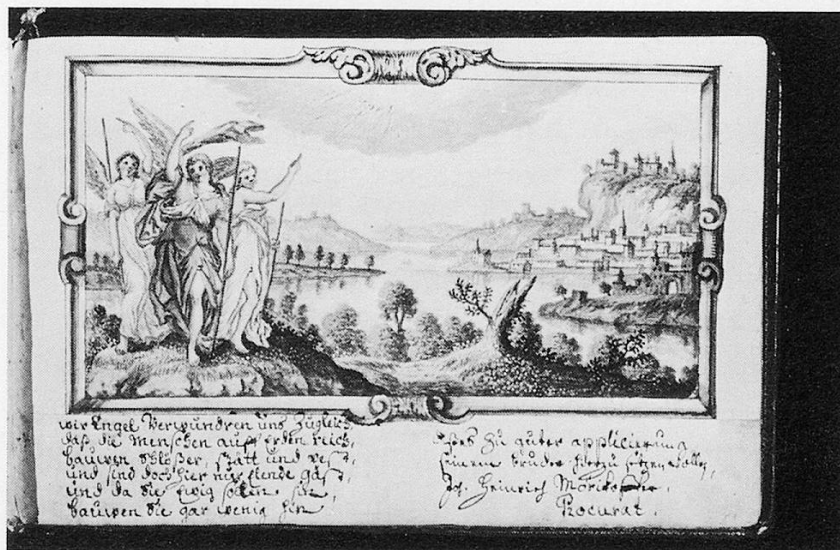 wir Engel Verwundren uns Zugleich,
daß die Menschen auff erden reich,
bauwen Schlößer, Stätt und vest,
und sind doch hier nur ellende gäst,
und da sie Ewig sollen sin,
bauwen sie gar wenig hin
Dises zu guter applicierung
seinem bruder hierzu setzen wollen,
Joh. Heinrich
Procurat.